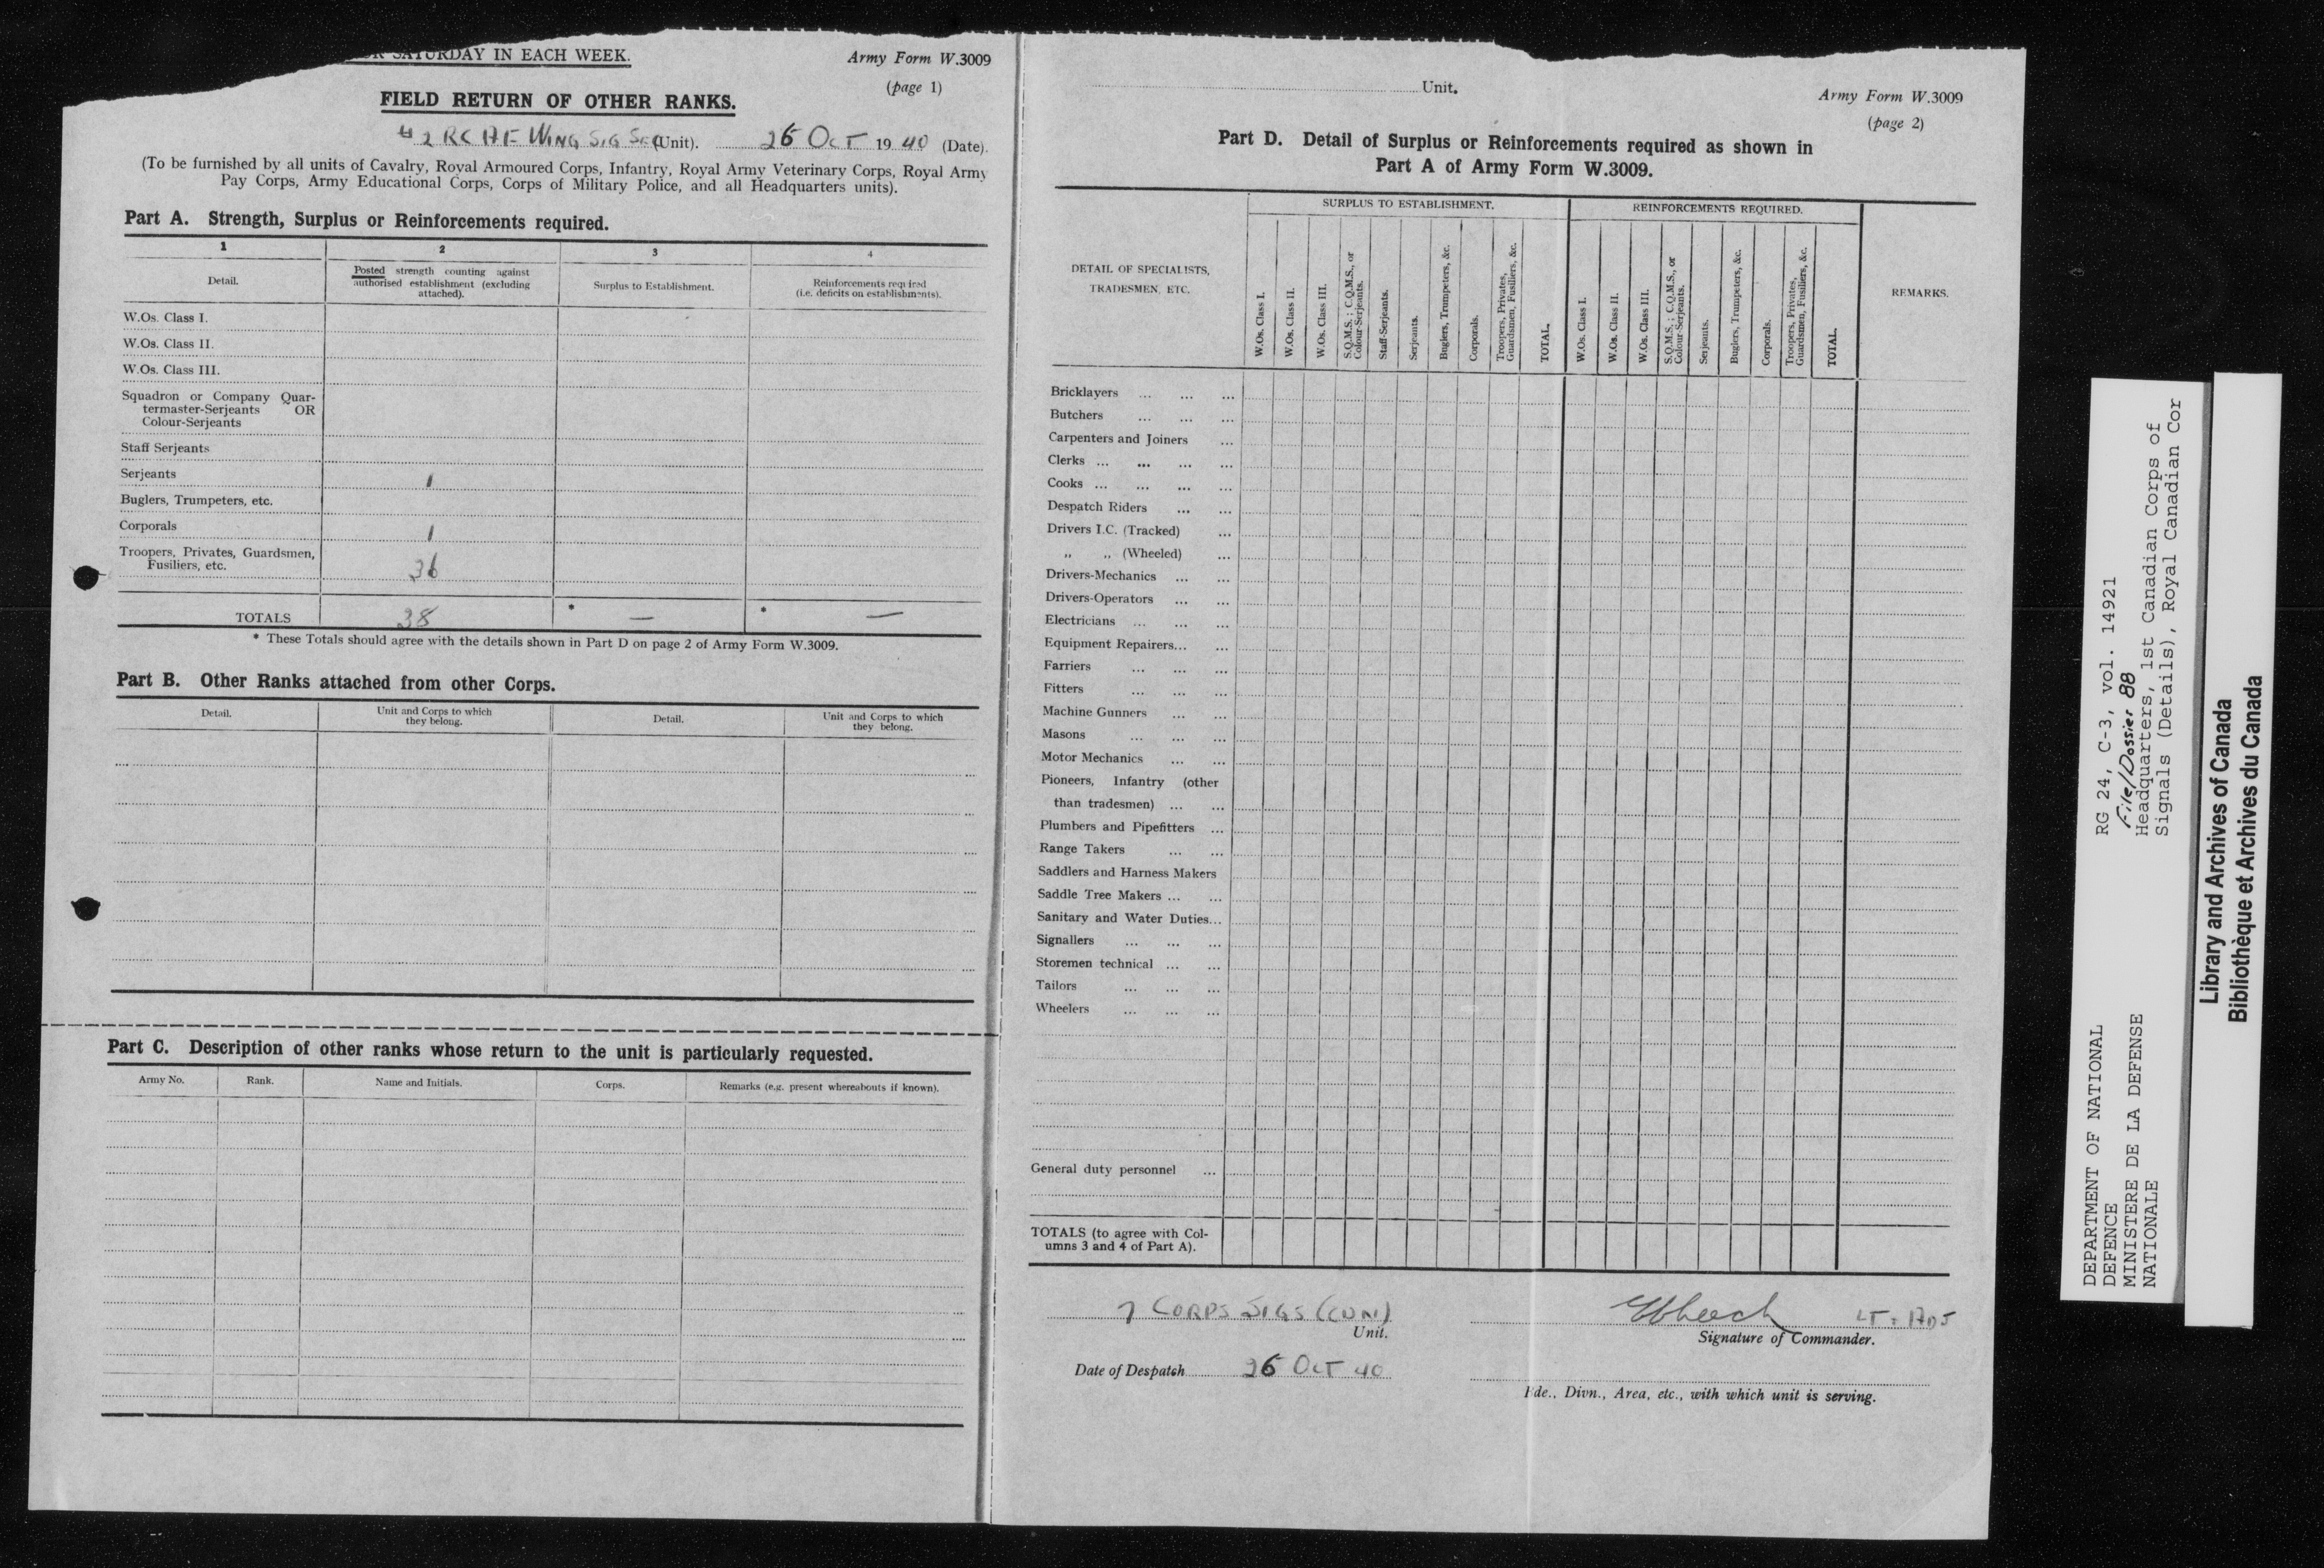 SATURDAY IN EACH WEEK.
Army Form W.3009
(page 1)
FIELD RETURN OF OTHER RANKS.
WING SIG SEC (Unit). 26 OCT 1940 (Date).
(To be furnished by all units of Cavalry, Royal Armoured Corps, Infantry, Royal Army Veterinary Corps, Royal Army
Pay Corps, Army Educational Corps, Corps of Military Police, and all Headquarters units).
Part A. Strength, Surplus or Reinforcements required.
1 2 3 4
Detail.
Posted strength counting against
authorised establishment (excluding
attached).
Surplus to Establishment.
Reinforcements required
(i.e. deficits on establishments).
W.Os. Class I.
W.Os. Class II.
W.Os. Class III.
Squadron or Company Quar-
termaster-Serjeants OR
Colour-Serjeants
Staff Serjeants
Serjeants 1
Buglers, Trumpeters, etc.
Corporals 1
Troopers, Privates, Guardsmen,
Fusiliers, etc. 36
TOTALS 38 * — * —
* These Totals should agree with the details shown in Part D on page 2 of Army Form W.3009.
Part B. Other Ranks attached from other Corps.
Detail.
Unit and Corps to which
they belong.
Detail.
Unit and Corps to which
they belong.
Part C. Description of other ranks whose return to the unit is particularly requested.
Army No. Rank. Name and Initials. Corps. Remarks (e.g. present whereabouts if known).
Unit.
Army Form W.3009
(page 2)
Part D. Detail of Surplus or Reinforcements required as shown in
Part A of Army Form W.3009.
DETAIL OF SPECIALISTS,
TRADESMEN, ETC.
SURPLUS TO ESTABLISHMENT.
W.Os. Class I.
W.Os. Class II.
W.Os. Class III.
S.Q.M.S.; C.Q.M.S., or
Colour-Serjeants.
Staff-Serjeants.
Serjeants.
Buglers, Trumpeters, &c.
Corporals.
Troopers, Privates,
Guardsmen, Fusiliers, &c.
TOTAL.
REINFORCEMENTS REQUIRED.
W.Os. Class I.
W.Os. Class II.
W.Os. Class III.
S.Q.M.S.; C.Q.M.S., or
Colour-Serjeants.
Serjeants.
Buglers, Trumpeters, &c.
Corporals.
Troopers, Privates,
Guardsmen, Fusiliers, &c.
TOTAL.
REMARKS.
Bricklayers ... ... ...
Butchers ... ... ...
Carpenters and Joiners ...
Clerks ... ... ... ...
Cooks ... ... ... ...
Despatch Riders ... ...
Drivers I.C. (Tracked) ...
„ „ (Wheeled) ...
Drivers-Mechanics ... ...
Drivers-Operators ... ...
Electricians ... ... ...
Equipment Repairers... ...
Farriers ... ... ...
Fitters ... ... ...
Machine Gunners ... ...
Masons ... ... ...
Motor Mechanics ... ...
Pioneers, Infantry (other
than tradesmen) ... ...
Plumbers and Pipefitters ...
Range Takers ... ...
Saddlers and Harness Makers
Saddle Tree Makers ... ...
Sanitary and Water Duties...
Signallers ... ... ...
Storemen technical ... ...
Tailors ... ... ...
Wheelers ... ... ...
General duty personnel ...
TOTALS (to agree with Col-
umns 3 and 4 of Part A).
7 CORPS SIGS (CDN)
Unit.
LT. ADJ
Signature of Commander.
Date of Despatch 26 OCT 40
Bde., Divn., Area, etc., with which unit is serving.
DEPARTMENT OF NATIONAL
DEFENCE
MINISTERE DE LA DEFENSE
NATIONALE
RG 24, C-3, vol. 14921
File/Dossier 88
Headquarters, 1st Canadian Corps of
Signals (Details), Royal Canadian Cor
Library and Archives of Canada
Bibliothèque et Archives du Canada